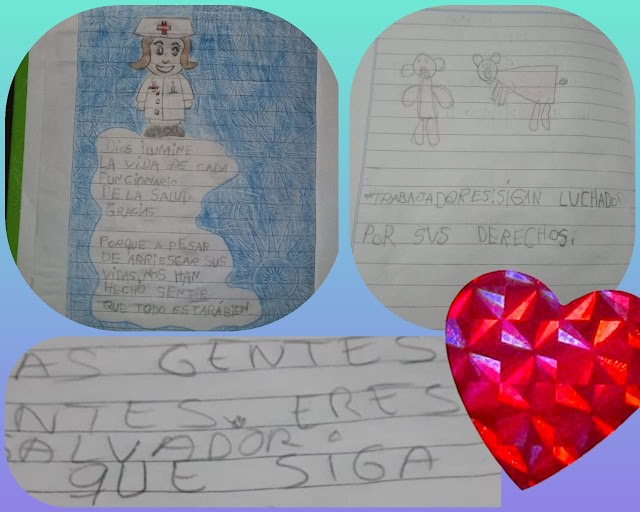 DIOS ILUMINE
LA VIDA DE CADA
FUNCIONARIO
DE LA SALUD
GRACIAS
PORQUE A PESAR
DE ARRIESGAR SUS
VIDAS, NOS HAN
HECHO SENTIR
QUE TODO ESTARÁ BIEN
TRABAJADORES: SIGAN LUCHADO
POR SUS DERECHOS.
AS GENTES
NTES. ERES
SALVADOR.
QUE SIGA